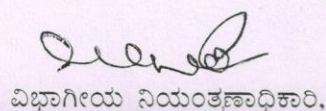 ವಿಭಾಗೀಯ ನಿಯಂತ್ರಣಾಧಿಕಾರಿ